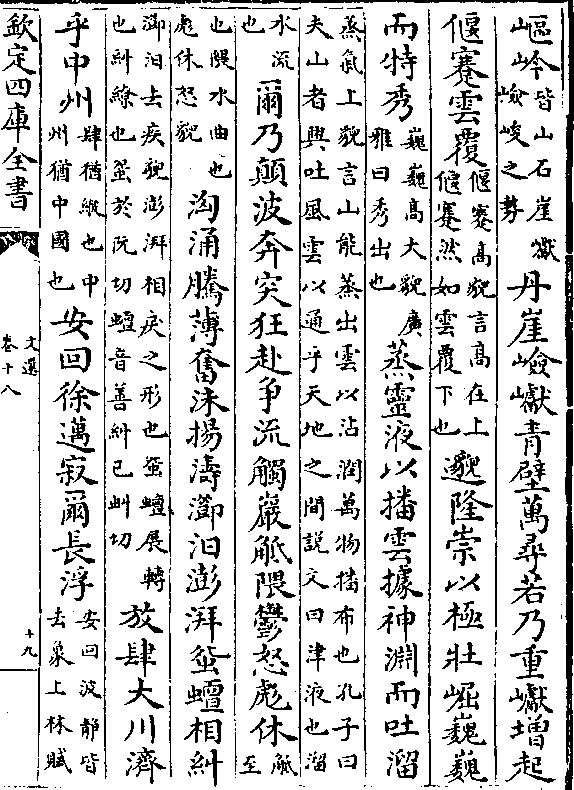 嶇岑皆山石崖巚
嶮峻之勢
丹崖嶮巘青壁萬尋若乃重巘增起
偃蹇雲覆
偃蹇高貌言高在上
偃蹇然如雲覆下也
邈隆崇以極壯崛巍巍
而特秀
巍巍高大貌廣
雅曰秀出也
蒸靈液以播雲據神淵而吐溜
蒸氣上貌言山能蒸出雲以沾潤萬物播布也孔子曰
夫山者興吐風雲以通乎天地之間説文曰津液也溜
水流
也
爾乃顛波奔突狂赴争流觸巖觝隈鬱怒彪休
觝
至
也隈水曲也
彪休怒貌
洶涌騰薄奮沫揚濤瀄汩澎湃蜿蟺相糾
瀄汩去疾貌澎湃相戾之形也蜿蟺展轉
也糾繚也蜿於阮切蟺音善糾已虯切
放肆大川濟
乎中州
肆猶縱也中
州猶中國也
安回徐邁寂爾長浮
安回波静皆
去象上林賦
欽定四庫全書
文選
卷十八
十九